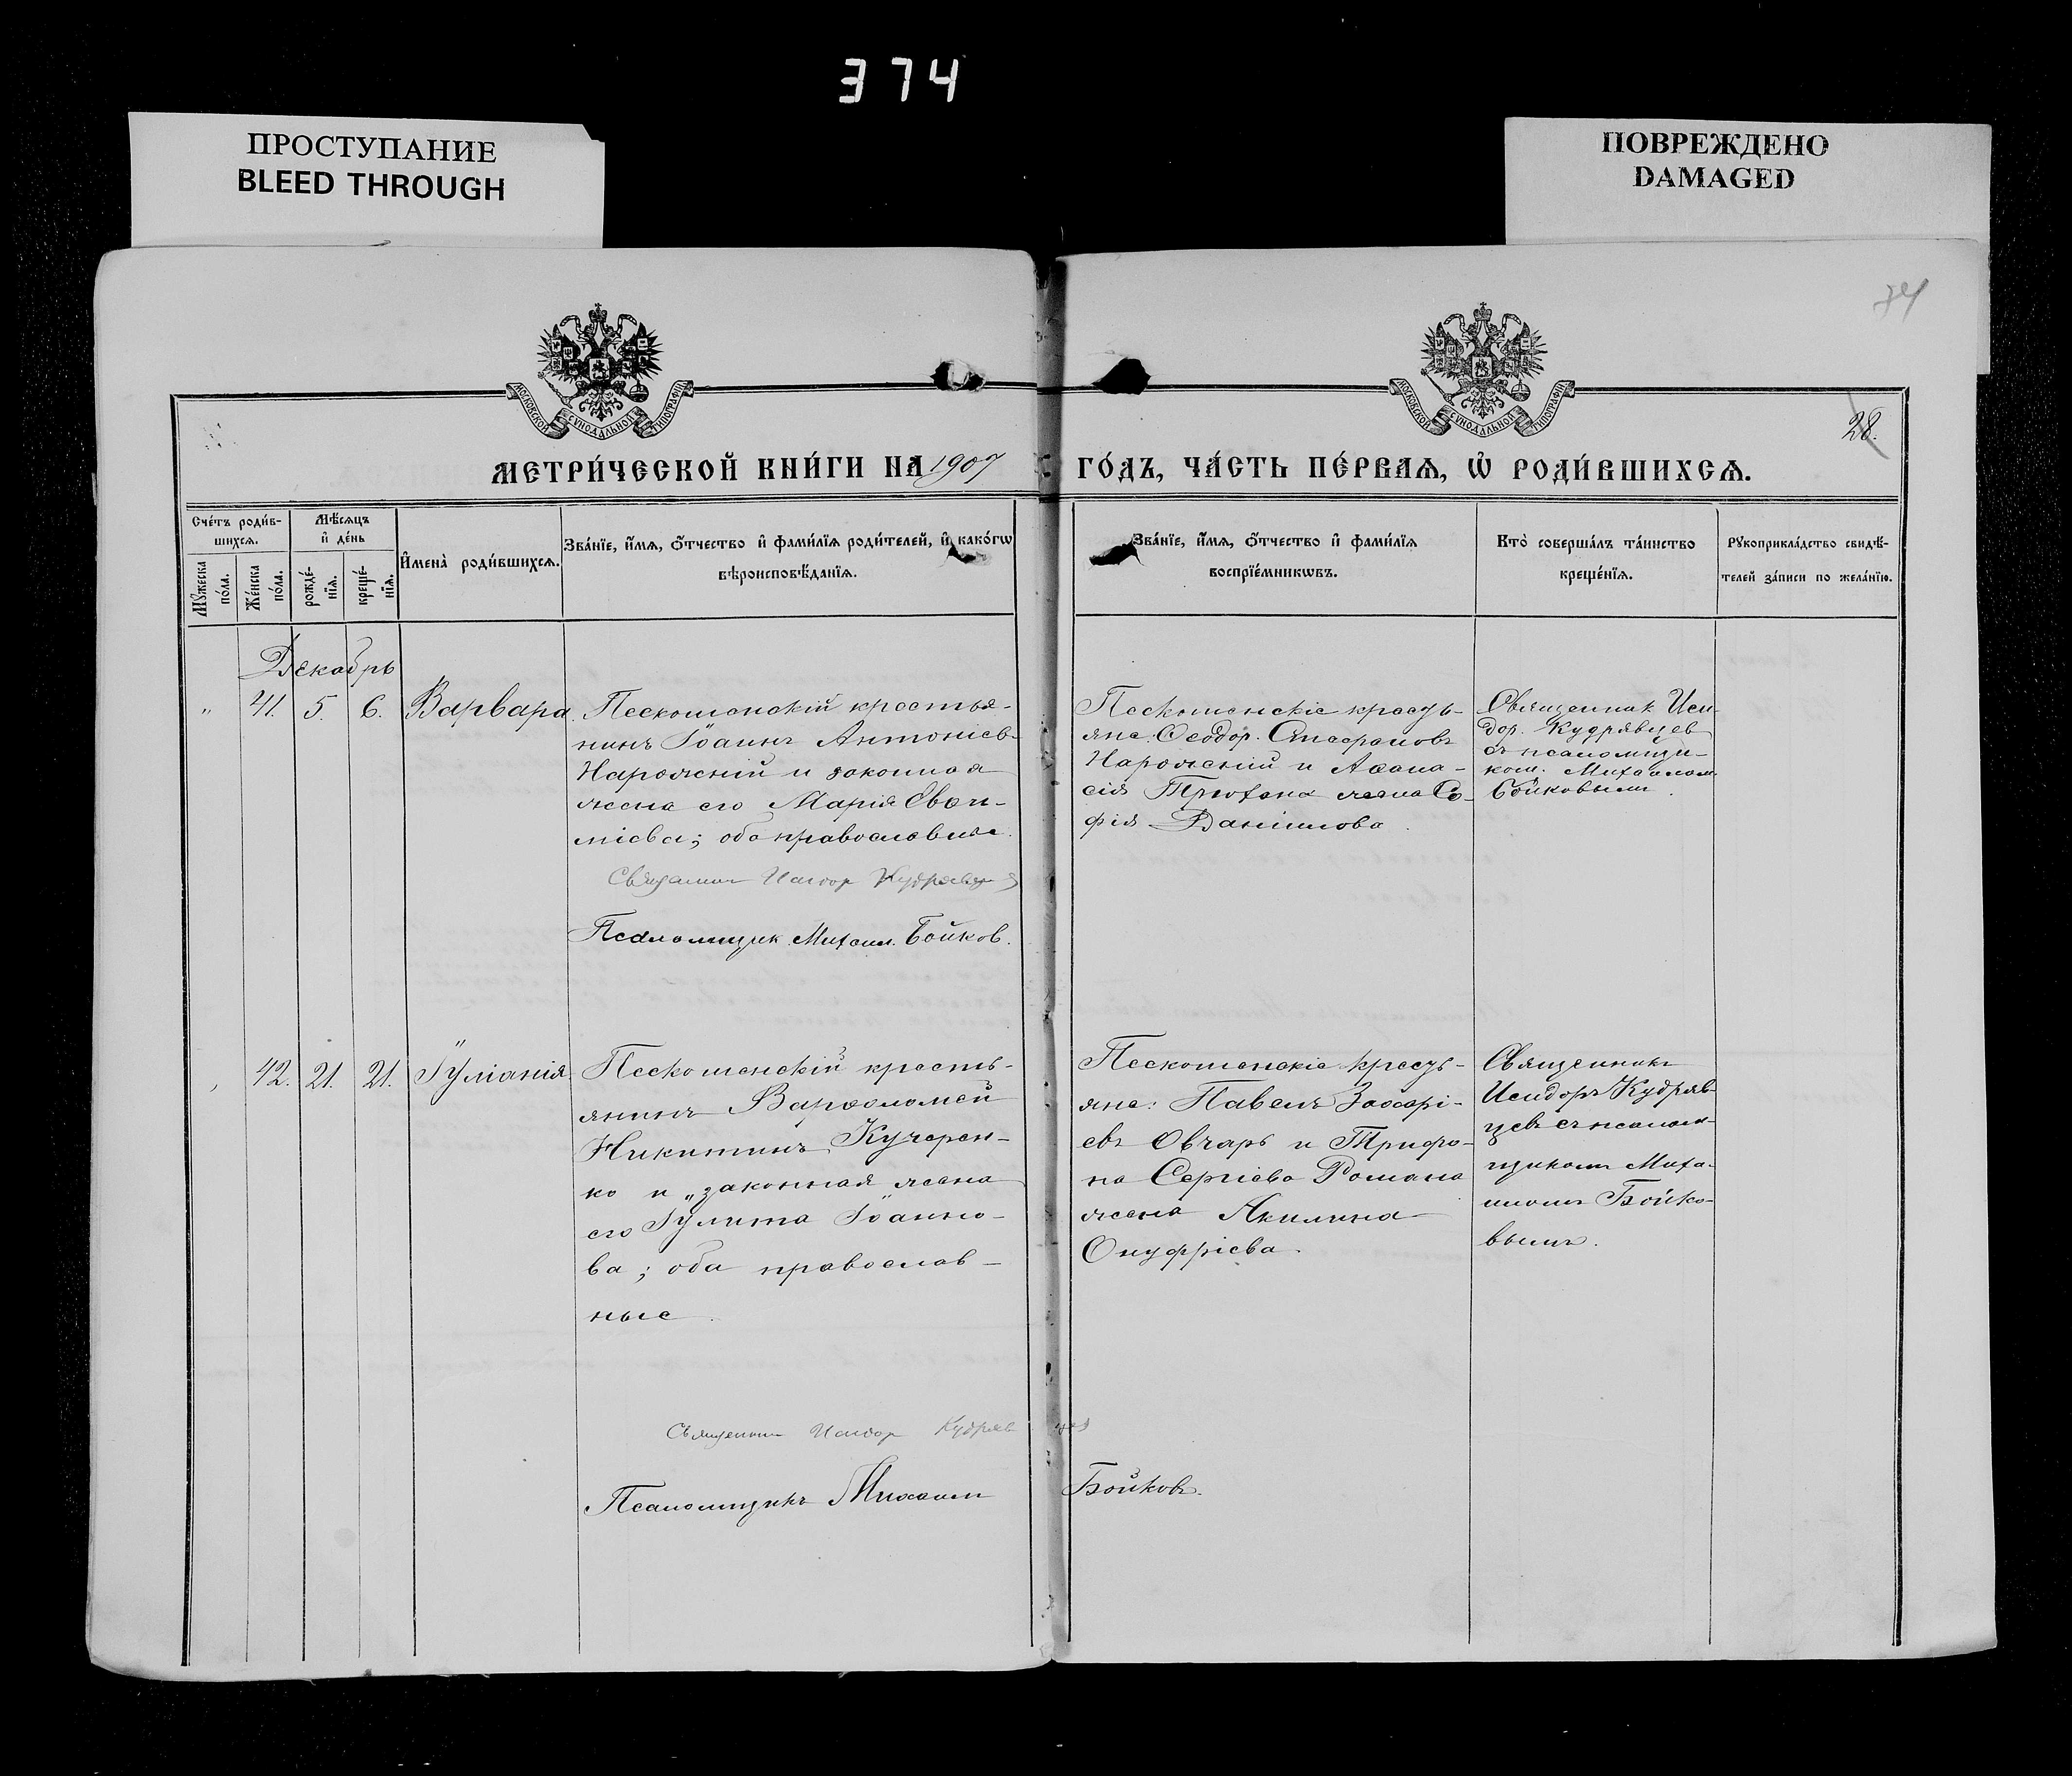 374
ПРОСТУПАНИЕ
BLEED THROUGH
ПОВРЕЖДЕНО
DAMAGED
74
МОСКОВСКОЙ СѴНОДАЛЬНОЙ ТИПОГРАФІИ
МОСКОВСКОЙ СѴНОДАЛЬНОЙ ТИПОГРАФІИ
28.
МЕТРИ́ЧЕСКОЙ КНИ́ГИ НА 1907 ГО́ДЪ, ЧА́СТЬ ПЕ́РВАЯ, Ѡ҆ РОДИ́ВШИХСЯ.
Сче́тъ роди́в-
шихся.
Мꙋ́жеска
по́ла.
Же́нска
по́ла.
Мѣ́сяцъ
и҆ де́нь
рожде́-
нїя.
креще́-
нїя.
И҆мена̀ роди́вшихся.
Зва́нїе, и҆́мя, ѻ҆́тчество и҆ фами́лїя роди́телей, и҆ како́гѡ
вѣроисповѣ́данїя.
Зва́нїе, и҆́мя, ѻ҆́тчество и҆ фами́лїя
воспрїе́мникѡвъ.
Кто̀ соверша́лъ та́инство
креще́нїя.
Рꙋкоприкла́дство свидѣ́-
телей за́писи по жела́нїю.
Декабрь
" 41. 5. 6. Варвара
Пескошенскій крестья-
нинъ Іоаннъ Антоніевъ
Нарожній и законная
жена его Марія Евѳи-
міева; оба православные.
Священник Исидор Кудрявцев
Псаломщик Михаил Бойков.
Песkошенскіе кресть-
яне: Ѳеодор Стефановъ
Нарожній и Аѳана-
сія Трюхана жена Со-
фія Даніилова.
Священник Иси-
дор Кудрявцев
съ псаломщи-
ком Михаилом
Бойковым.
42. 21. 21. Іуліанія
Пескошенскій кресть-
янинъ Варѳоломей
Никитинъ Кучерен-
ко и законная жена
его Іулита Іоанно-
ва; оба православ-
ные.
Пескошенскіе кресть-
яне: Павелъ Захарі-
евъ Овчаръ и Трифо-
на Сергіева Романа
жена Акилина
Онуфріева.
Священникъ
Исидоръ Кудряв-
цевъ съ псалом-
щикомъ Миха-
иломъ Бойко-
вымъ.
Священник Исидор Кудрявцев
Псаломщикъ Михаилъ Бойковъ.